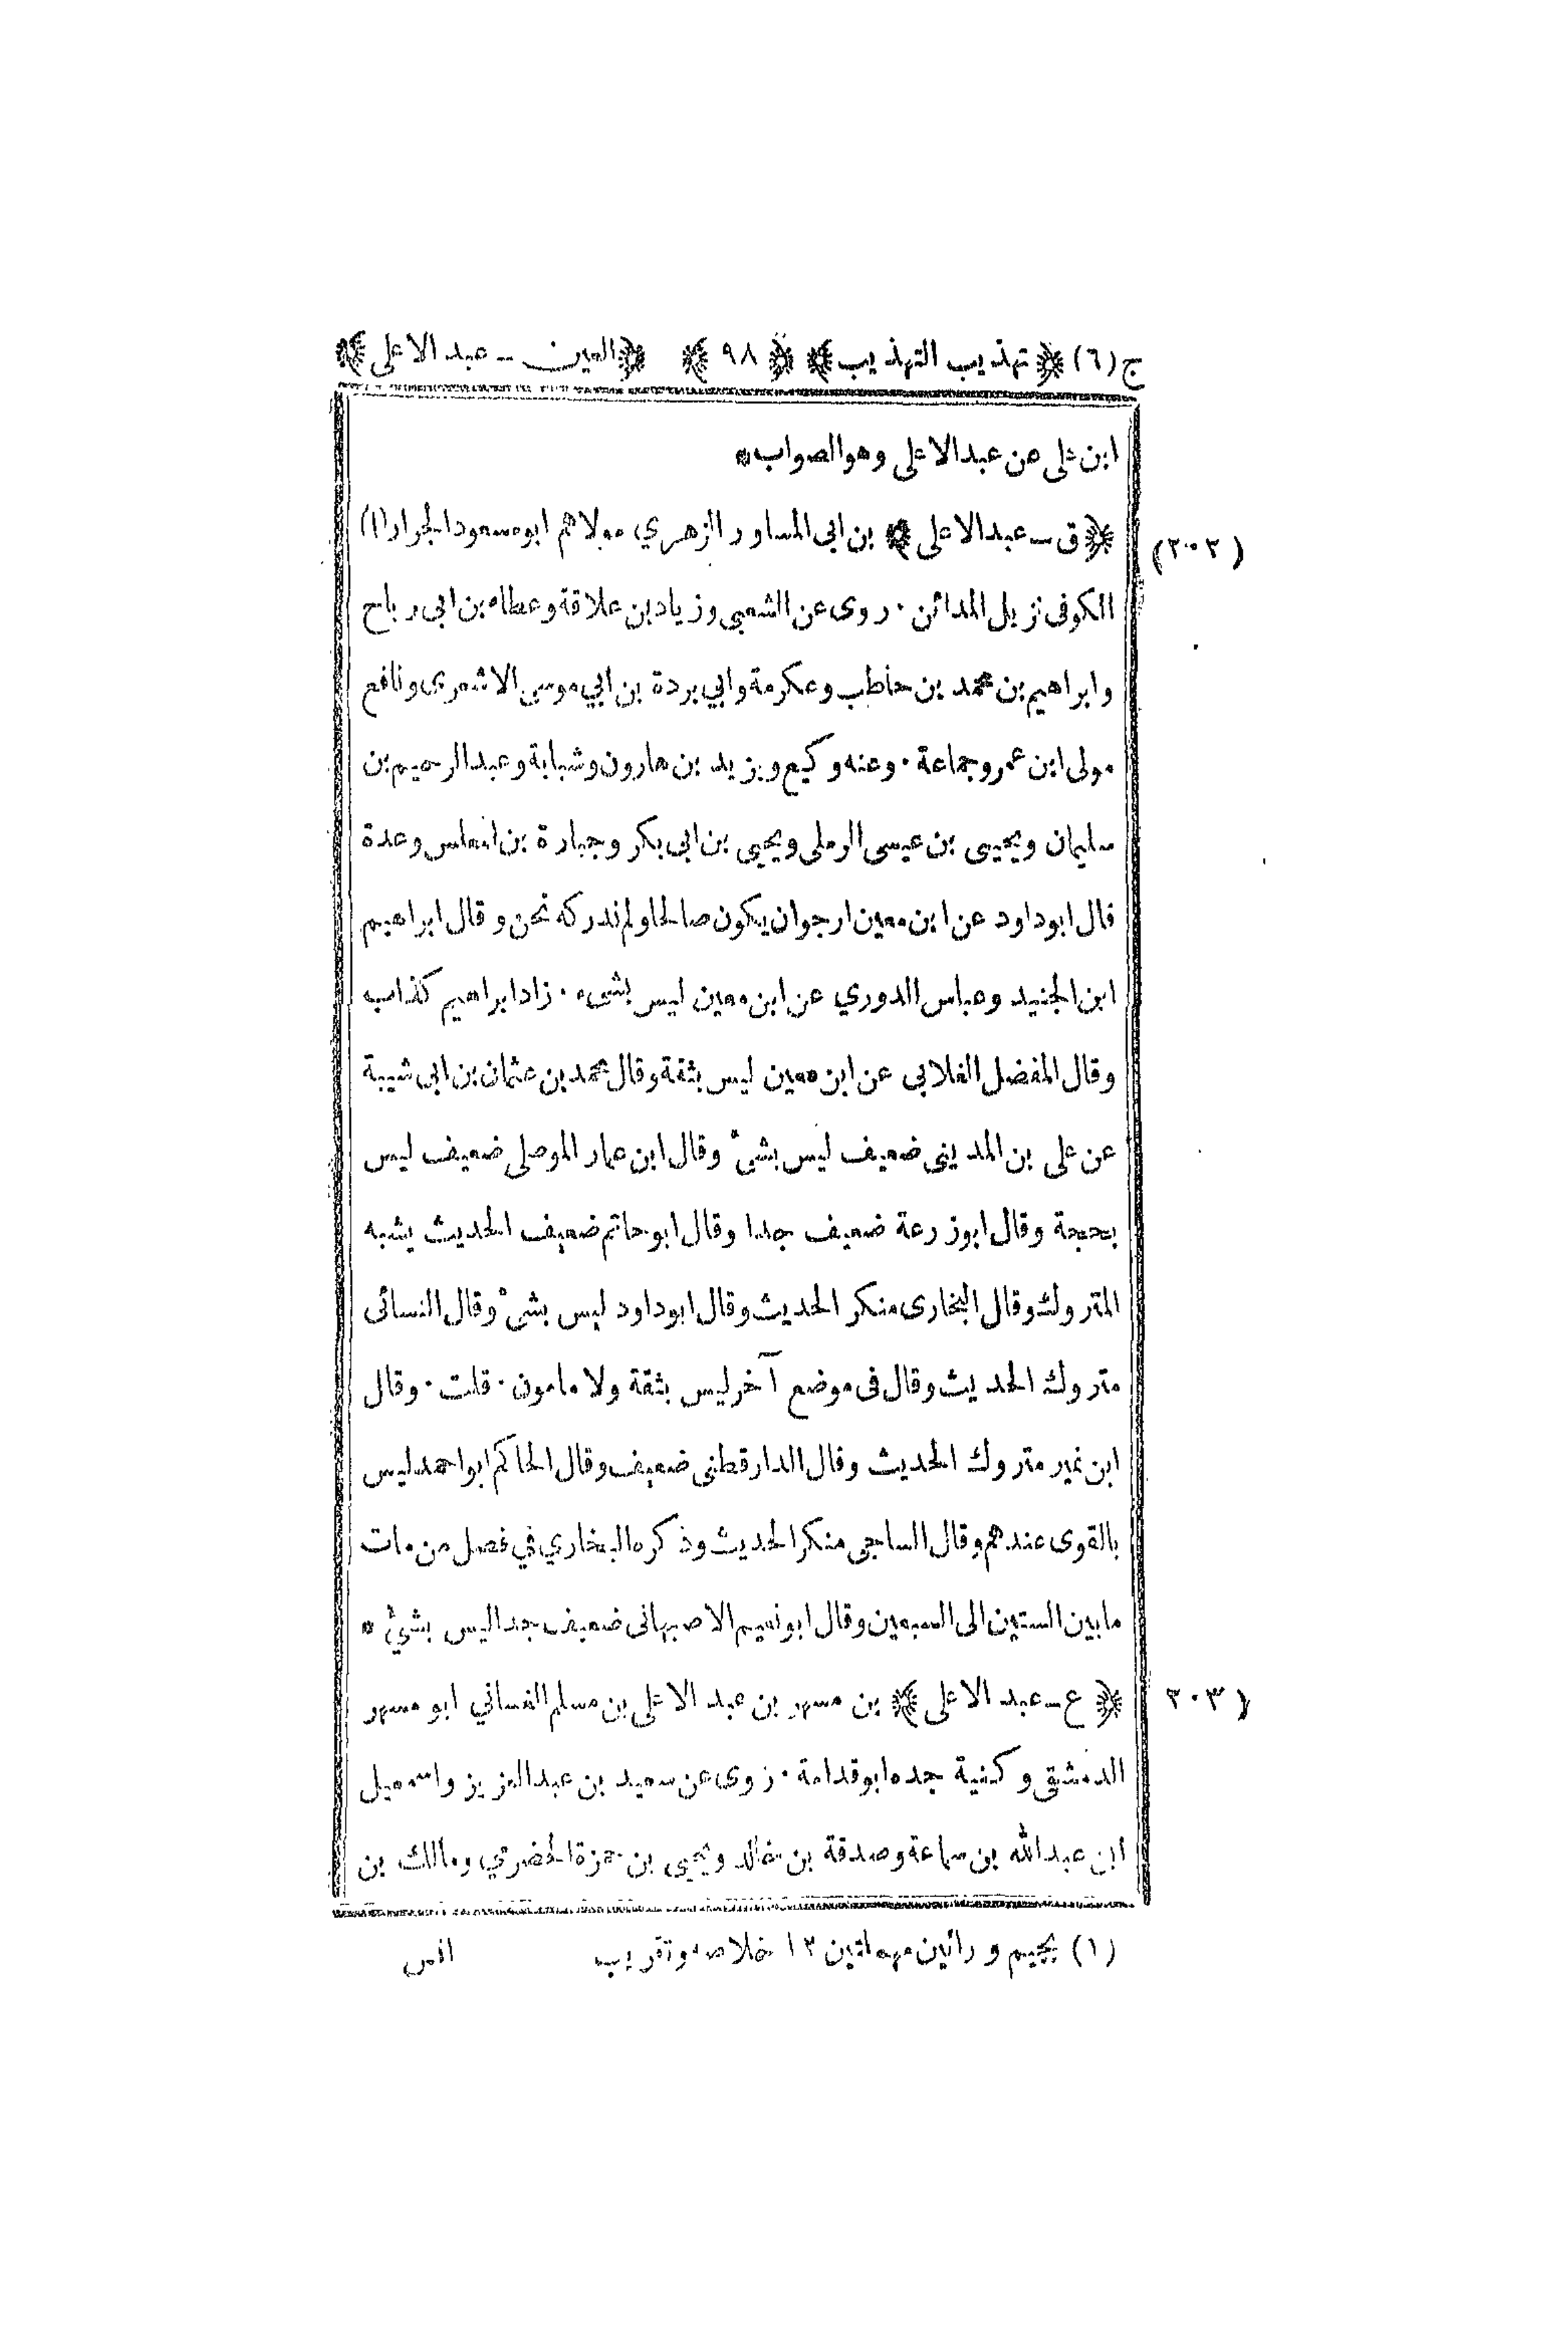 ج (٦) ﴿ تهذيب التهذيب ﴾ ﴿ ٩٨ ﴾ ﴿ العين ــ عبد الاعلى ﴾
ابن على عن عبد الاعلى وهو الصواب *
(٢٠٢) ﴿ ق ــ عبد الاعلى ﴾ بن ابى المساور الزهري مولاهم ابو مسعود الجرار (١)
الكوفى نزيل المدائن · روى عن الشعبي وزياد بن علاقة وعطاء بن ابى رباح
وابراهيم بن محمد بن حاطب وعكرمة وابي بردة بن ابي موسى الاشعرى ونافع
مولى ابن عمر وجماعة · وعنه وكيع ويزيد بن هارون وشبابة وعبد الرحيم بن
سليمان ويحيى بن عيسى الرملى ويحيى بن ابى بكر وجبارة بن المغلس وعدة
قال ابو داود عن ابن معين ارجو ان يكون صالحا ولم ندركه نحن وقال ابراهيم
ابن الجنيد وعباس الدوري عن ابن معين ليس بشىء · زاد ابراهيم كذاب
وقال المفضل الغلابي عن ابن معين ليس بثقة وقال محمد بن عثمان بن ابى شيبة
عن على بن المديني ضعيف ليس بشىء وقال ابن عمار الموصلى ضعيف ليس
بحجة وقال ابو زرعة ضعيف جدا وقال ابو حاتم ضعيف الحديث يشبه
المتروك وقال البخارى منكر الحديث وقال ابو داود ليس بشىء وقال النسائى
متروك الحديث وقال فى موضع آخر ليس بثقة ولا مامون · قلت · وقال
ابن نمير متروك الحديث وقال الدارقطنى ضعيف وقال الحاكم ابو احمد ليس
بالقوى عندهم وقال الساجى منكر الحديث وذكره البخاري في فصل من مات
ما بين الستين الى السبعين وقال ابو نعيم الاصبهانى ضعيف جدا ليس بشيء *
(٢٠٣) ﴿ ع ــ عبد الاعلى ﴾ بن مسهر بن عبد الاعلى بن مسلم الغساني ابو مسهر
الدمشقى وكنية جده ابو قدامة · روى عن سعيد بن عبد العزيز واسمعيل
ابن عبد الله بن سماعة وصدقة بن خالد ويحيى بن حمزة الحضرمي ومالك بن
(١) بجيم ورائين مهملتين ١٢ خلاصه وتقريب
انس